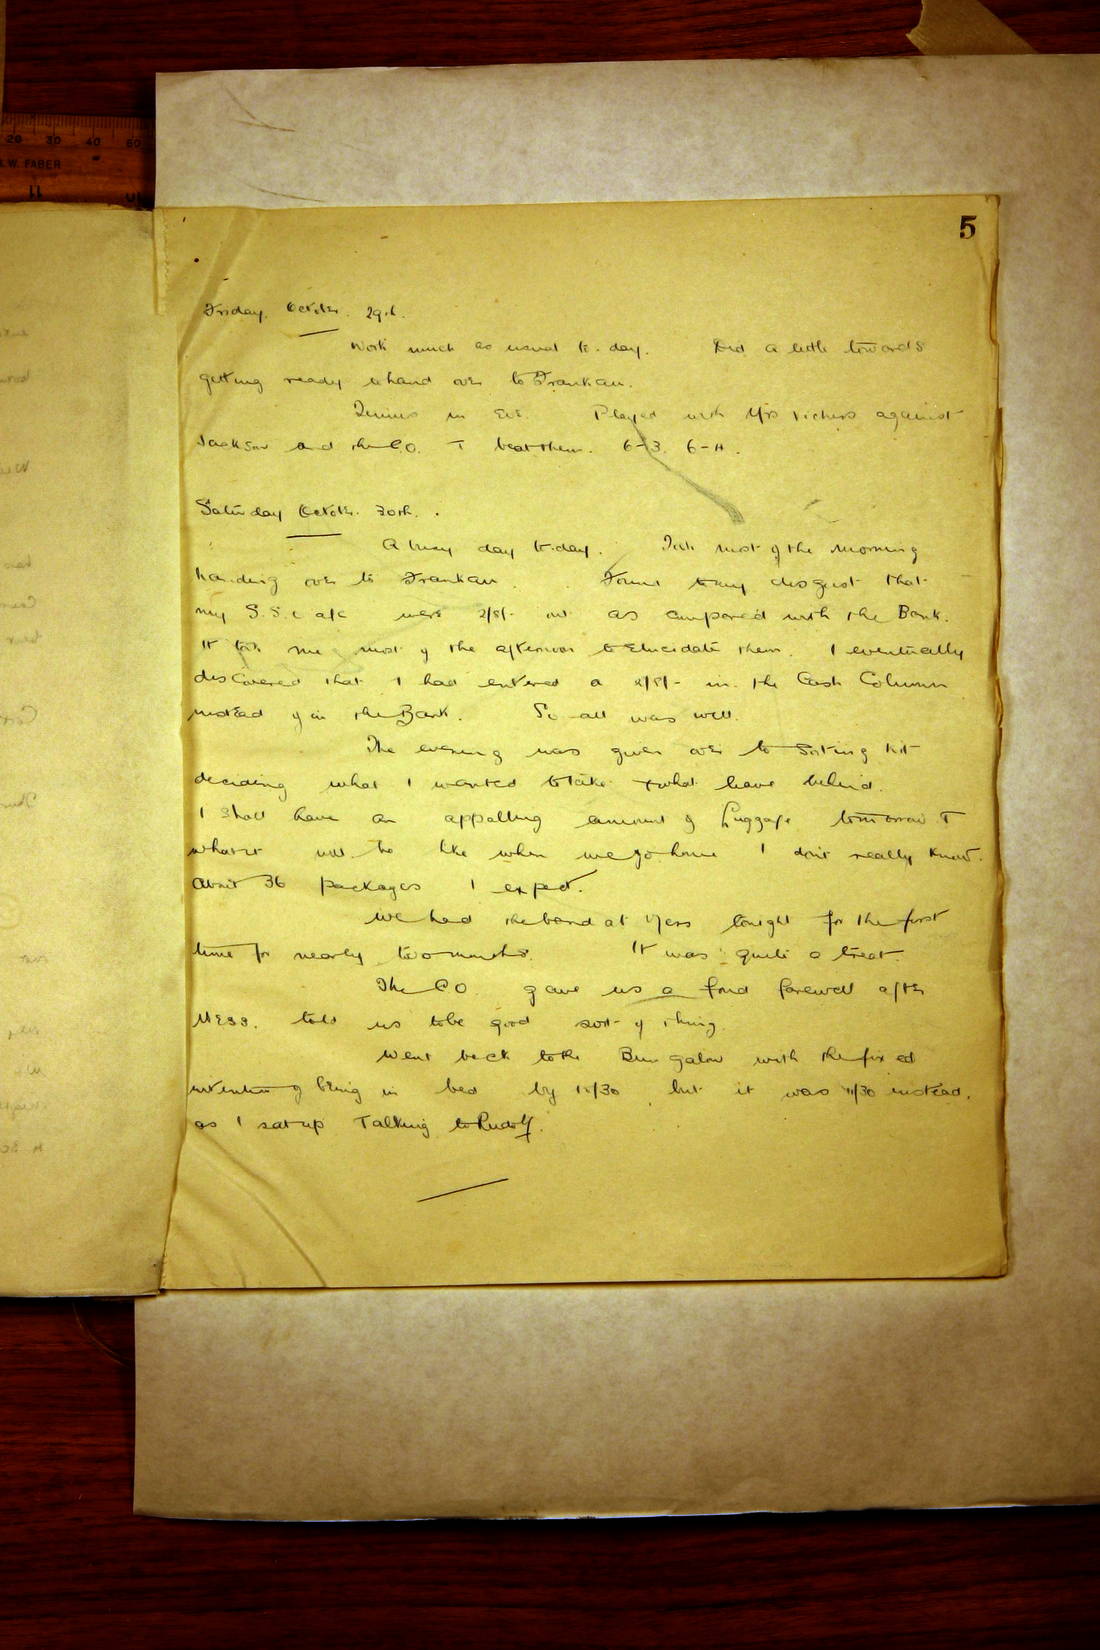 20 30 40 60
W. FABER
11
5
Friday. October. 29th.
Work much as usual to-day. Did a little towards
getting ready to hand over to Frankau.
Tennis in Eve. Played with Mrs Vickers against
Jackson and the C.O. & beat them. 6-3. 6-4.
Saturday October. 30th.
A busy day to-day. Took most of the morning
handing over to Frankau. Found to my disgust that
my a/c were 2/8/- out as compared with the Bank.
It took me most of the afternoon to Elucidate them. I eventually
discovered that I had entered a 2/8/- in the Cash Column
instead of in the Bank. So all was well.
The evening was given over to Sorting kit
deciding what I wanted to take & what leave behind.
I shall have an appalling amount of Luggage tomorrow &
what it will be like when we go home I don't really know.
About 36 packages I expect.
We had the band at Mess tonight for the first
time for nearly two months. It was quite a treat.
The CO. gave us a fond farewell after
Mess. told us to be good sort of thing.
Went back to the Bungalow with the fixed
intention of being in bed by 10/30 but it was 11/30 instead.
as I sat up Talking to Rudolf.